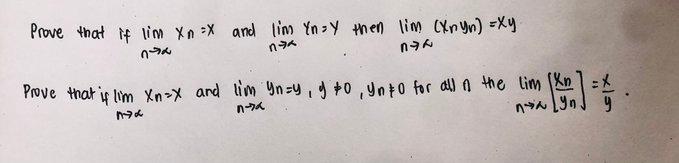 Prove that if lim Xn = X and lim Yn = Y then lim (Xnyn) = Xy
n→∞ n→∞ n→∞
Prove that if lim Xn = X and lim Yn = y, y ≠ 0, yn ≠ 0 for all n the lim [Xn/yn] = x/y.
n→∞ n→∞ n→∞